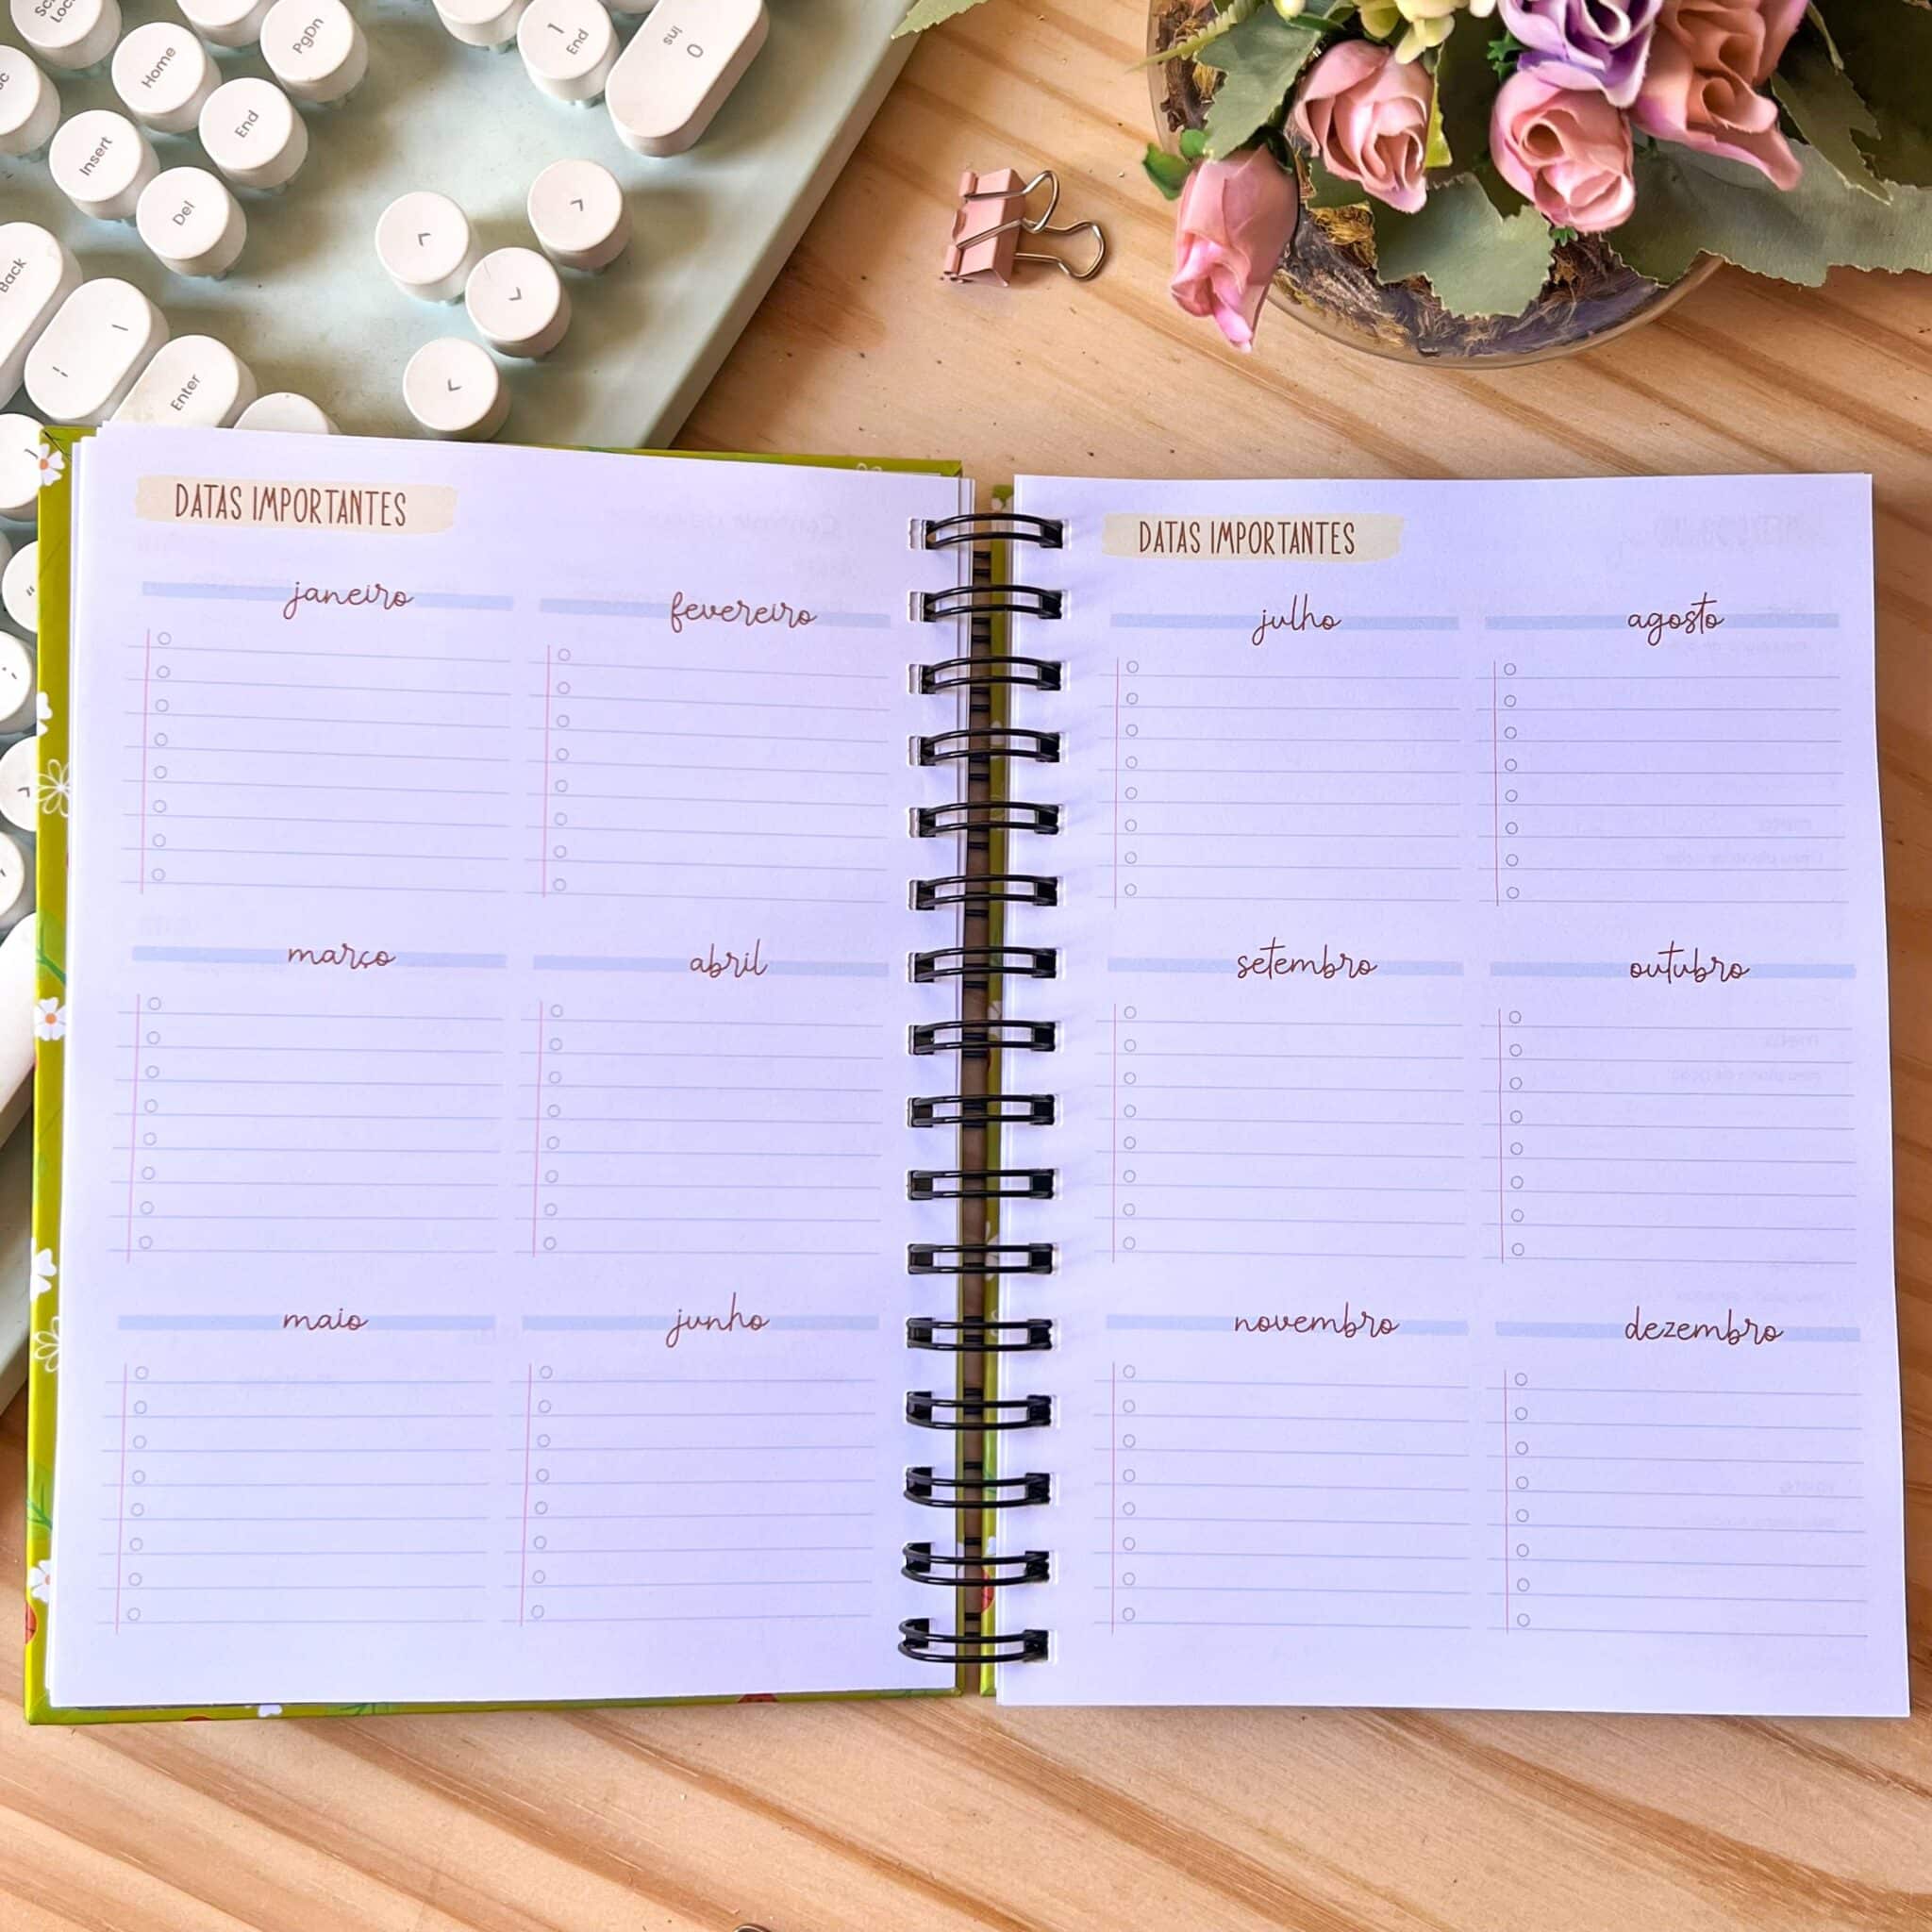 PgDn
1
End
Ins
0
Home
End
Insert
Del
Back
Enter
DATAS IMPORTANTES
janeiro
fevereiro
março
abril
maio
junho
DATAS IMPORTANTES
julho
agosto
setembro
outubro
novembro
dezembro